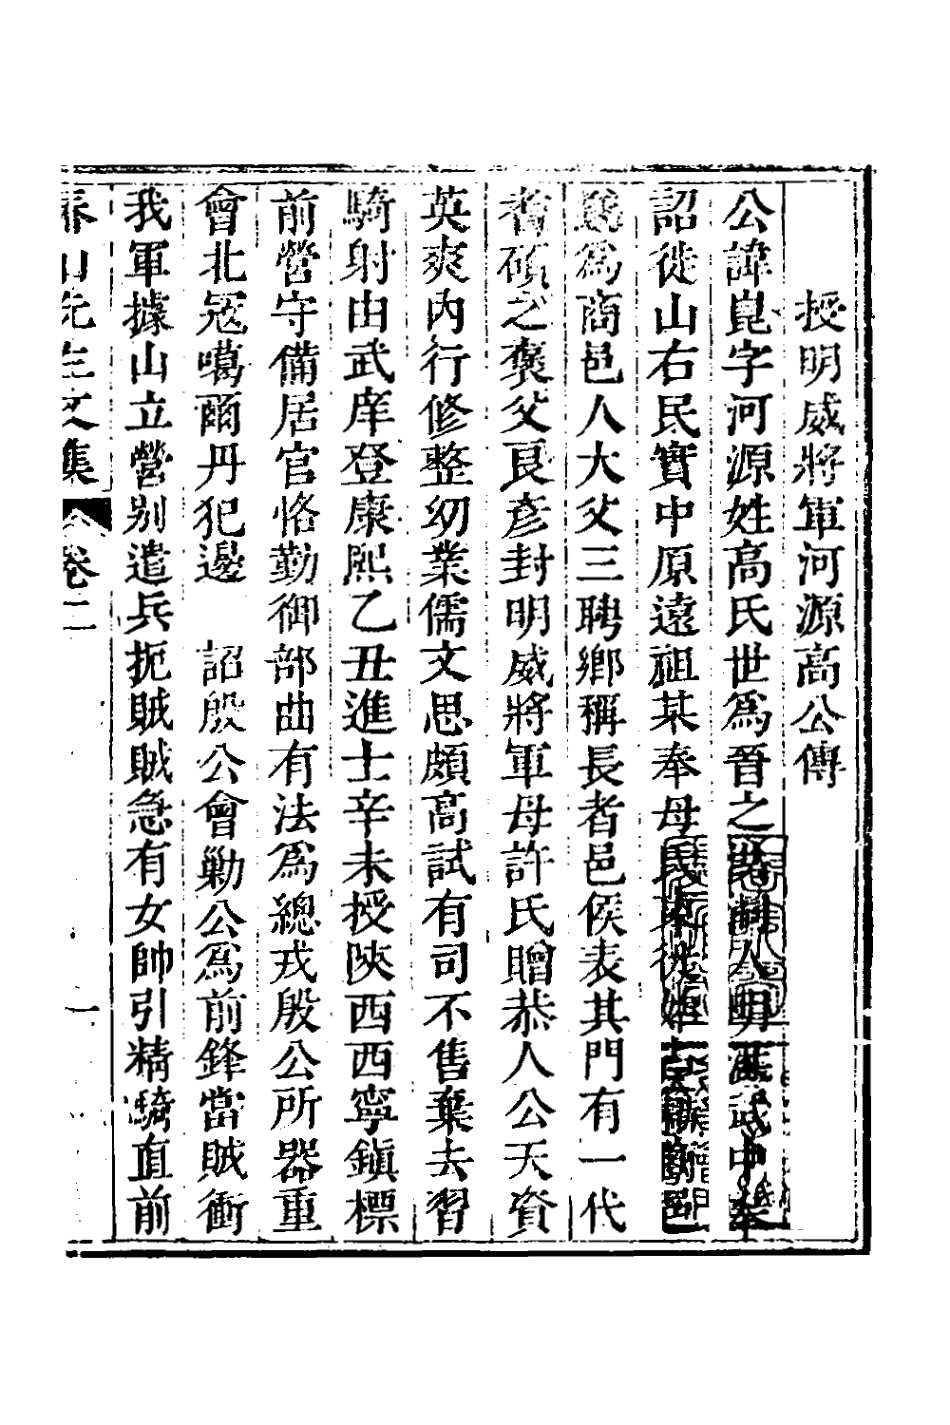 授明威將軍河源高公傳
公諱崑字河源姓高氏世爲晉之人明洪武中奉
詔徙山右民實中原遠祖某奉母邑
爲商邑人大父三聘鄉稱長者邑侯表其門有一代
耆碩之褒父艮彥封明威將軍母許氏贈恭人公天資
英爽内行修整幼業儒文思頗高試有司不售棄去習
騎射由武庠登康熙乙丑進士辛未授陝西西寧鎭標
前營守備居官恪勤御部曲有法爲總戎殷公所器重
會北冦噶爾丹犯邊 詔殷公會勦公爲前鋒當賊衝
我軍據山立營别遣兵扼賊賊急有女帥引精騎直前
春山先生文集 卷二 一